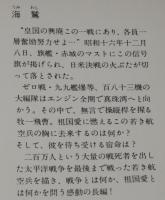 海鷲
うみ わし
“皇国の興廃この一戦にあり、各員一
層奮励努力せよ…”昭和十六年十二月
八日、旗艦・赤城のマストにこの信号
旗が掲げられ、日米決戦の火ぶたが切
って落とされた。
ゼロ戦・九九艦爆等、百八十三機の
大編隊はエンジン全開で真珠湾へと向
かう。その中で、無言で操縦桿を握る
牧一飛曹。祖国愛に燃えるこの若き航
空兵の胸に去来するものは何か？
そして、彼を待ち受ける宿命は？
二百万人という大量の戦死者を出し
た太平洋戦争を最後まで戦った若き航
空兵を描き、戦争とは何か、祖国愛と
は何かを問う感動の長編！